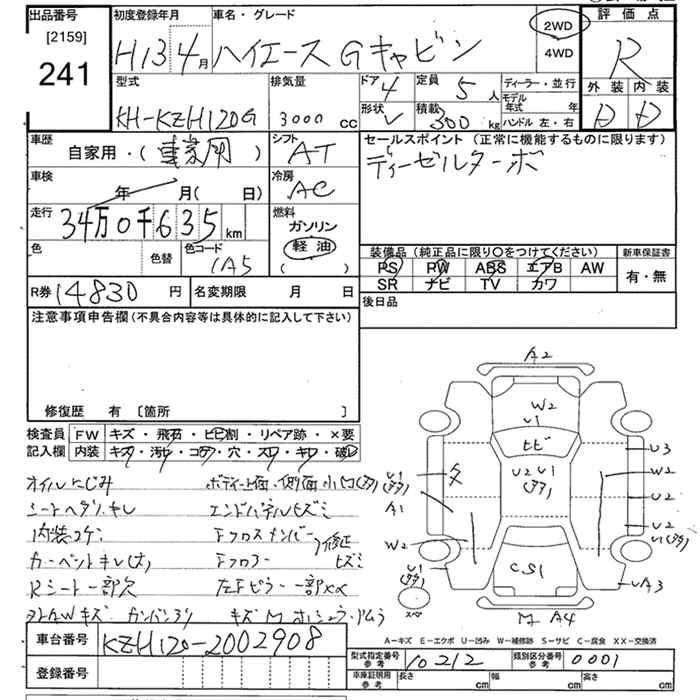 出品番号
[2159]
241
初度登録年月
H13 4月
車名・グレード
ハイエース Gキャビン
2WD
4WD
評価点
R
外装 内装
D D
型式
KH-KZH120G
排気量
3000 cc
ドア 4
定員 5 人
形状 V
積載 300 kg
ディーラー・並行
モデル年式 年
ハンドル 左・右
車歴
自家用・(事業用)
シフト
AT
セールスポイント (正常に機能するものに限ります)
ディーゼルターボ
車検
年 月( 日)
冷房
AC
走行
34万0千635km
燃料
ガソリン
軽油
( )
色
色替
色コード
1A5
装備品 (純正品に限り〇をつけてください)
PS PW ABS エアB AW
SR ナビ TV カワ
新車保証書
有・無
R券 14830 円
名変期限 月 日
後日品
注意事項申告欄 (不具合内容等は具体的に記入して下さい)
修復歴 有 [箇所 ]
検査員記入欄
FW キズ・飛石・ヒビ割・リペア跡・×要
内装 キズ・汚れ・コゲ・穴・スレ・キレ・破レ
オイルにじみ
シートヘタリ、キレ
内装コゲ
カーペットキレ(大)
Rシート一部欠
ボディ上面・側面小凹(多)
エンドパネルヒズミ
Fクロスメンバー
修正
Fフロアー ヒズミ
左Fピラー一部××
A2
W2
U1
ヒビ
U2 U1
(多多)
U1
(多多)
A1
W2
U1
(多多)
スペア
U3
W2
U2
U2
U1(多多)
UA3
CS1
M A4
A-キズ E-エクボ U-凹み W-補修跡 S-サビ C-腐食 XX-交換済
車台番号
KZH120-2002908
登録番号
型式指定番号
参考
10212
類別区分番号
参考
0001
車庫証明用
参考
長さ cm
幅 cm
高さ cm